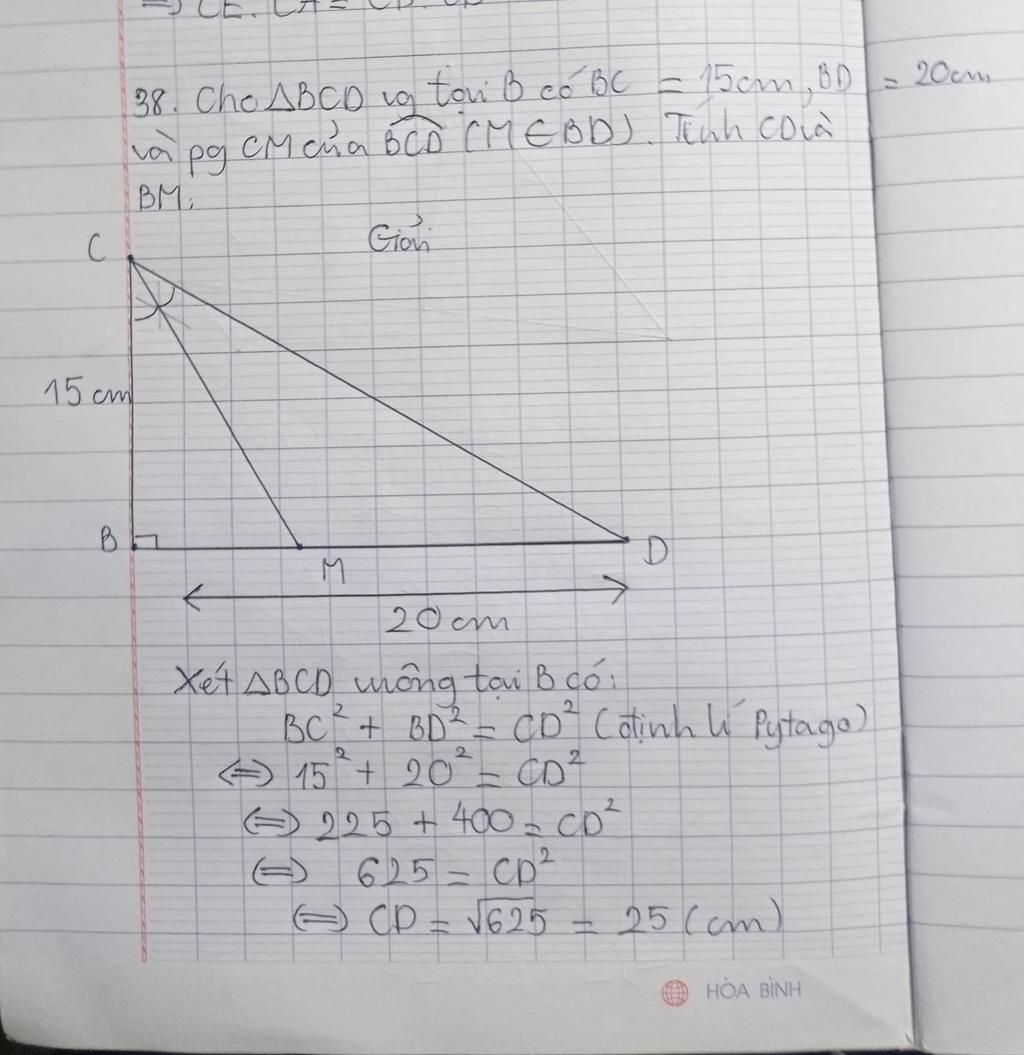 => CE. CA = CD. CB
38. Cho △BCD vg tại B có BC = 15cm, BD = 20cm
và pg CM của BCD (M ∈ BD). Tính CD và
BM.
Giải
C
15 cm
B
M
D
20 cm
Xét △BCD vuông tại B có:
BC² + BD² = CD² (định lí Pytago)
<=> 15² + 20² = CD²
<=> 225 + 400 = CD²
<=> 625 = CD²
<=> CD = √625 = 25 (cm)
HÒA BÌNH